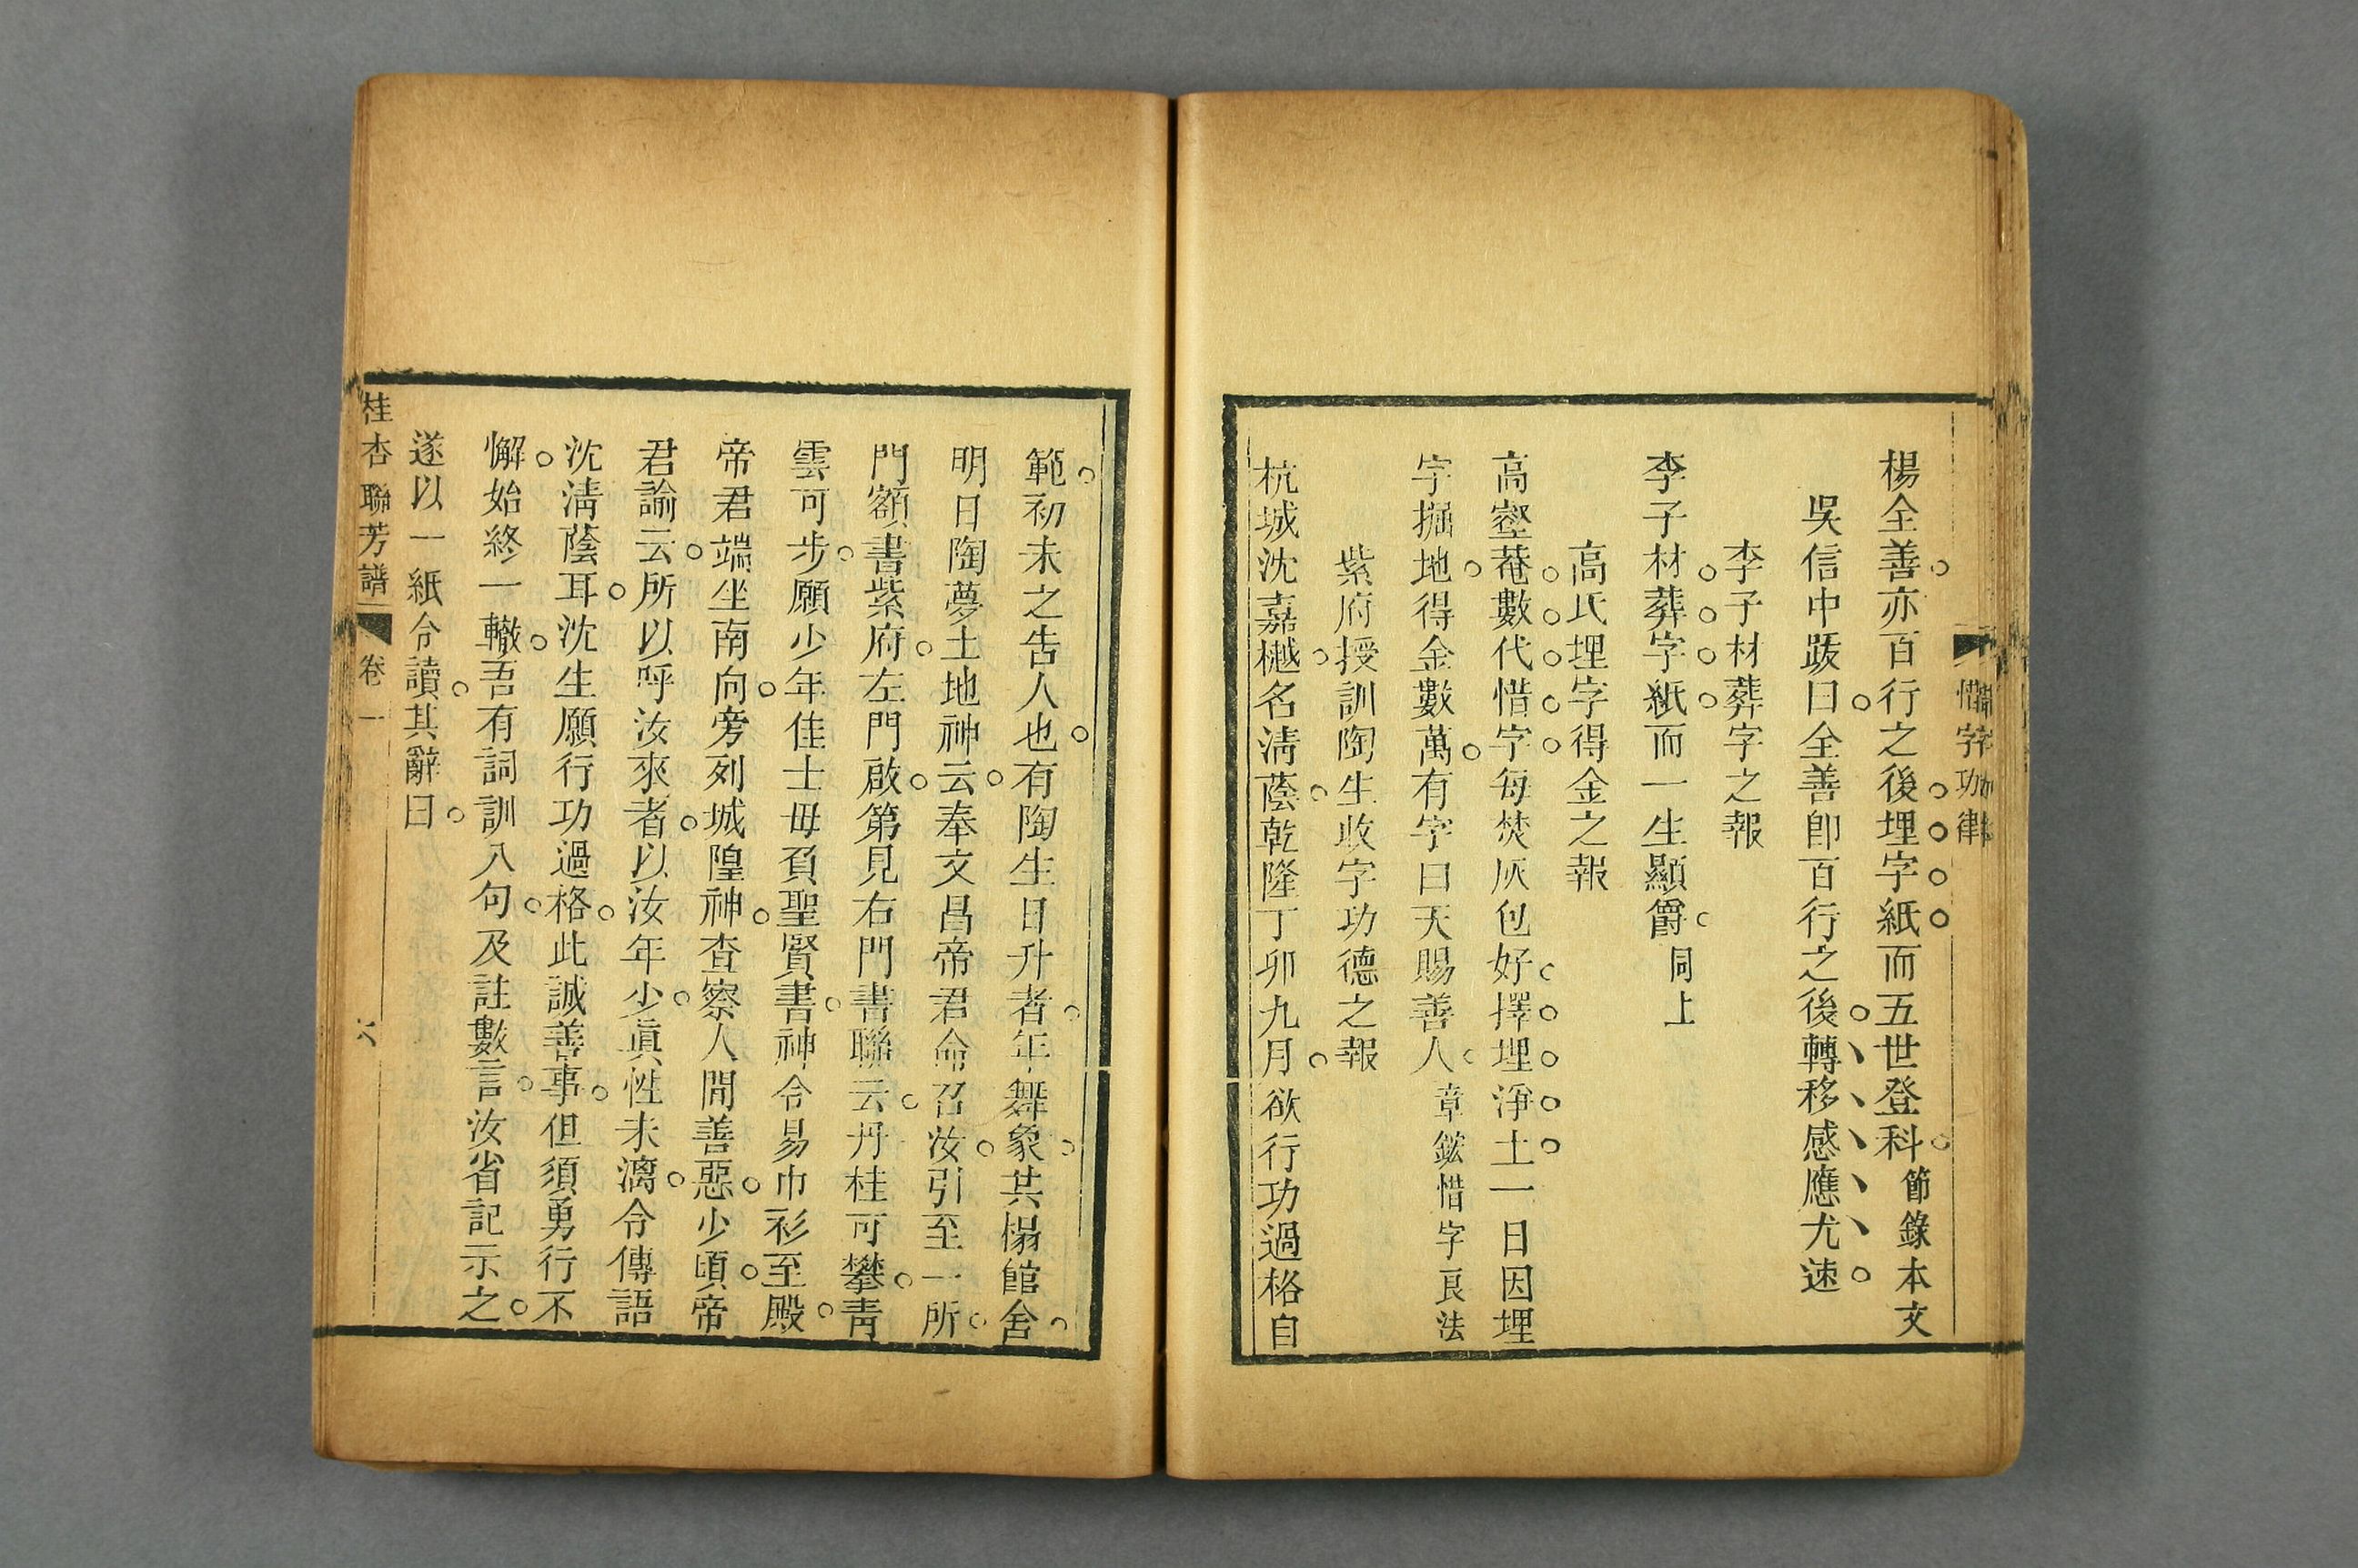 惜字功律
楊全善亦百行之後埋字紙而五世登科節錄本文
吳信中跋曰全善卽百行之後轉移感應尤速
李子材葬字之報
李子材葬字紙而一生顯爵同上
高氏埋字得金之報
高壑菴數代惜字每焚灰包好擇埋淨土一日因埋
字掘地得金數萬有字曰天賜善人章鋐惜字良法
紫府授訓陶生收字功德之報
杭城沈嘉樾名淸蔭乾隆丁卯九月欲行功過格自
範初未之告人也有陶生日升者年舞象其楊館舍
明日陶夢土地神云奉文昌帝君命召汝引至一所
門額書紫府左門啟第見右門書聯云丹桂可攀靑
雲可步願少年佳士毋負聖賢書神令易巾衫至殿
帝君端坐南向旁列城隍神查察人間善惡少頃帝
君諭云所以呼汝來者以汝年少眞性未漓令傳語
沈淸蔭耳沈生願行功過格此誠善事但須勇行不
懈始終一轍吾有詞訓八句及註數言汝省記示之
遂以一紙令讀其辭曰
桂杏聯芳譜 卷一 六